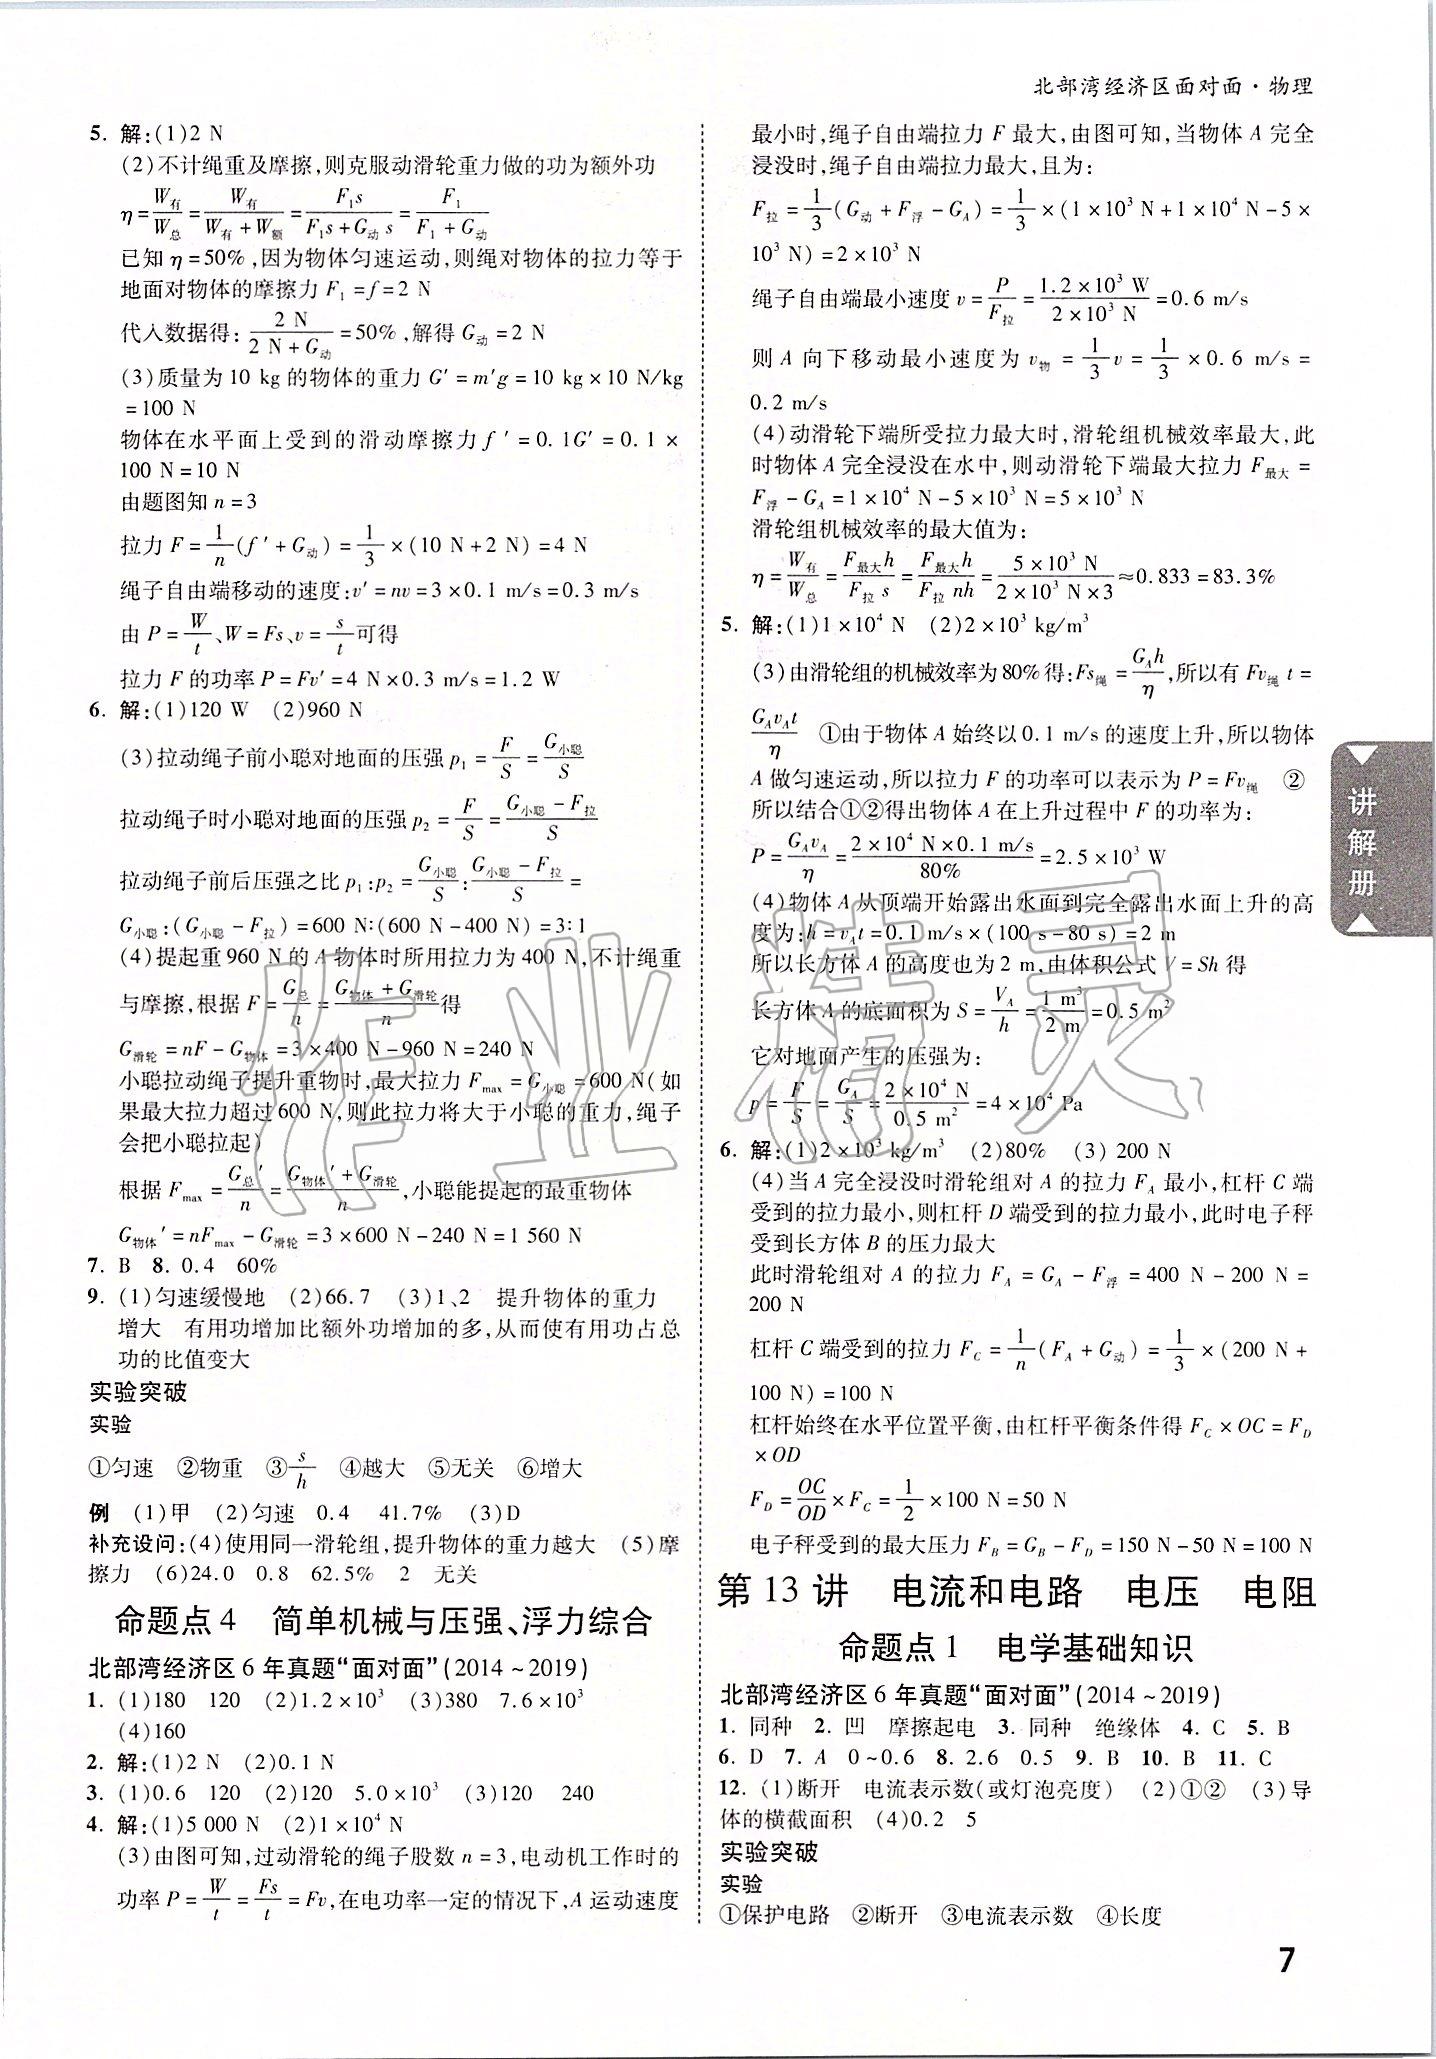 北部湾经济区面对面·物理
5. 解:(1)2 N
(2)不计绳重及摩擦,则克服动滑轮重力做的功为额外功
η=W有/W总=W有/(W有+W额)=F₁s/(F₁s+G动s)=F₁/(F₁+G动)
已知η=50%,因为物体匀速运动,则绳对物体的拉力等于
地面对物体的摩擦力F₁=f=2 N
代入数据得:2 N/(2 N+G动)=50%,解得G动=2 N
(3)质量为10 kg的物体的重力G′=m′g=10 kg×10 N/kg
=100 N
物体在水平面上受到的滑动摩擦力f′=0.1G′=0.1×
100 N=10 N
由题图知n=3
拉力F=1/n(f′+G动)=1/3×(10 N+2 N)=4 N
绳子自由端移动的速度:v′=nv=3×0.1 m/s=0.3 m/s
由P=W/t、W=Fs、v=s/t可得
拉力F的功率P=Fv′=4 N×0.3 m/s=1.2 W
6. 解:(1)120 W (2)960 N
(3)拉动绳子前小聪对地面的压强p₁=F/S=G小聪/S
拉动绳子时小聪对地面的压强p₂=F/S=(G小聪-F拉)/S
拉动绳子前后压强之比p₁:p₂=G小聪/S:(G小聪-F拉)/S=
G小聪:(G小聪-F拉)=600 N:(600 N-400 N)=3:1
(4)提起重960 N的A物体时所用拉力为400 N,不计绳重
与摩擦,根据F=G总/n=(G物体+G滑轮)/n得
G滑轮=nF-G物体=3×400 N-960 N=240 N
小聪拉动绳子提升重物时,最大拉力Fmax=G小聪=600 N(如
果最大拉力超过600 N,则此拉力将大于小聪的重力,绳子
会把小聪拉起)
根据Fmax=G总′/n=(G物体′+G滑轮)/n,小聪能提起的最重物体
G物体′=nFmax-G滑轮=3×600 N-240 N=1 560 N
7. B 8. 0.4 60%
9. (1)匀速缓慢地 (2)66.7 (3)1、2 提升物体的重力
增大 有用功增加比额外功增加的多,从而使有用功占总
功的比值变大
实验突破
实验
①匀速 ②物重 ③s/h ④越大 ⑤无关 ⑥增大
例 (1)甲 (2)匀速 0.4 41.7% (3)D
补充设问:(4)使用同一滑轮组,提升物体的重力越大 (5)摩
擦力 (6)24.0 0.8 62.5% 2 无关
命题点4 简单机械与压强、浮力综合
北部湾经济区6年真题“面对面”(2014~2019)
1. (1)180 120 (2)1.2×10³ (3)380 7.6×10³
(4)160
2. 解:(1)2 N (2)0.1 N
3. (1)0.6 120 (2)120 5.0×10³ (3)120 240
4. 解:(1)5 000 N (2)1×10⁴ N
(3)由图可知,过动滑轮的绳子股数n=3,电动机工作时的
功率P=W/t=Fs/t=Fv,在电功率一定的情况下,A运动速度
最小时,绳子自由端拉力F最大,由图可知,当物体A完全
浸没时,绳子自由端拉力最大,且为:
F拉=1/3(G动+F浮-G_A)=1/3×(1×10³ N+1×10⁴ N-5×
10³ N)=2×10³ N
绳子自由端最小速度v=P/F拉=1.2×10³ W/2×10³ N=0.6 m/s
则A向下移动最小速度为v物=1/3v=1/3×0.6 m/s=
0.2 m/s
(4)动滑轮下端所受拉力最大时,滑轮组机械效率最大,此
时物体A完全浸没在水中,则动滑轮下端最大拉力F最大=
F浮-G_A=1×10⁴ N-5×10³ N=5×10³ N
滑轮组机械效率的最大值为:
η=W有/W总=F最大h/F拉s=F最大h/F拉nh=5×10³ N/(2×10³ N×3)≈0.833=83.3%
5. 解:(1)1×10⁴ N (2)2×10³ kg/m³
(3)由滑轮组的机械效率为80%得:Fs绳=G_Ah/η,所以有Fv绳t=
G_Av_At/η ①由于物体A始终以0.1 m/s的速度上升,所以物体
A做匀速运动,所以拉力F的功率可以表示为P=Fv绳 ②
所以结合①②得出物体A在上升过程中F的功率为:
P=G_Av_A/η=2×10⁴ N×0.1 m/s/80%=2.5×10³ W
(4)物体A从顶端开始露出水面到完全露出水面上升的高
度为:h=v_At=0.1 m/s×(100 s-80 s)=2 m
所以长方体A的高度也为2 m,由体积公式V=Sh得
长方体A的底面积为S=V_A/h=1 m³/2 m=0.5 m²
它对地面产生的压强为:
p=F/S=G_A/S=2×10⁴ N/0.5 m²=4×10⁴ Pa
6. 解:(1)2×10³ kg/m³ (2)80% (3)200 N
(4)当A完全浸没时滑轮组对A的拉力F_A最小,杠杆C端
受到的拉力最小,则杠杆D端受到的拉力最小,此时电子秤
受到长方体B的压力最大
此时滑轮组对A的拉力F_A=G_A-F浮=400 N-200 N=
200 N
杠杆C端受到的拉力F_C=1/n(F_A+G动)=1/3×(200 N+
100 N)=100 N
杠杆始终在水平位置平衡,由杠杆平衡条件得F_C×OC=F_D
×OD
F_D=OC/OD×F_C=1/2×100 N=50 N
电子秤受到的最大压力F_B=G_B-F_D=150 N-50 N=100 N
第13讲 电流和电路 电压 电阻
命题点1 电学基础知识
北部湾经济区6年真题“面对面”(2014~2019)
1. 同种 2. 凹 摩擦起电 3. 同种 绝缘体 4. C 5. B
6. D 7. A 0~0.6 8. 2.6 0.5 9. B 10. B 11. C
12. (1)断开 电流表示数(或灯泡亮度) (2)①② (3)导
体的横截面积 (4)0.2 5
实验突破
实验
①保护电路 ②断开 ③电流表示数 ④长度
讲解册
7
作业精灵